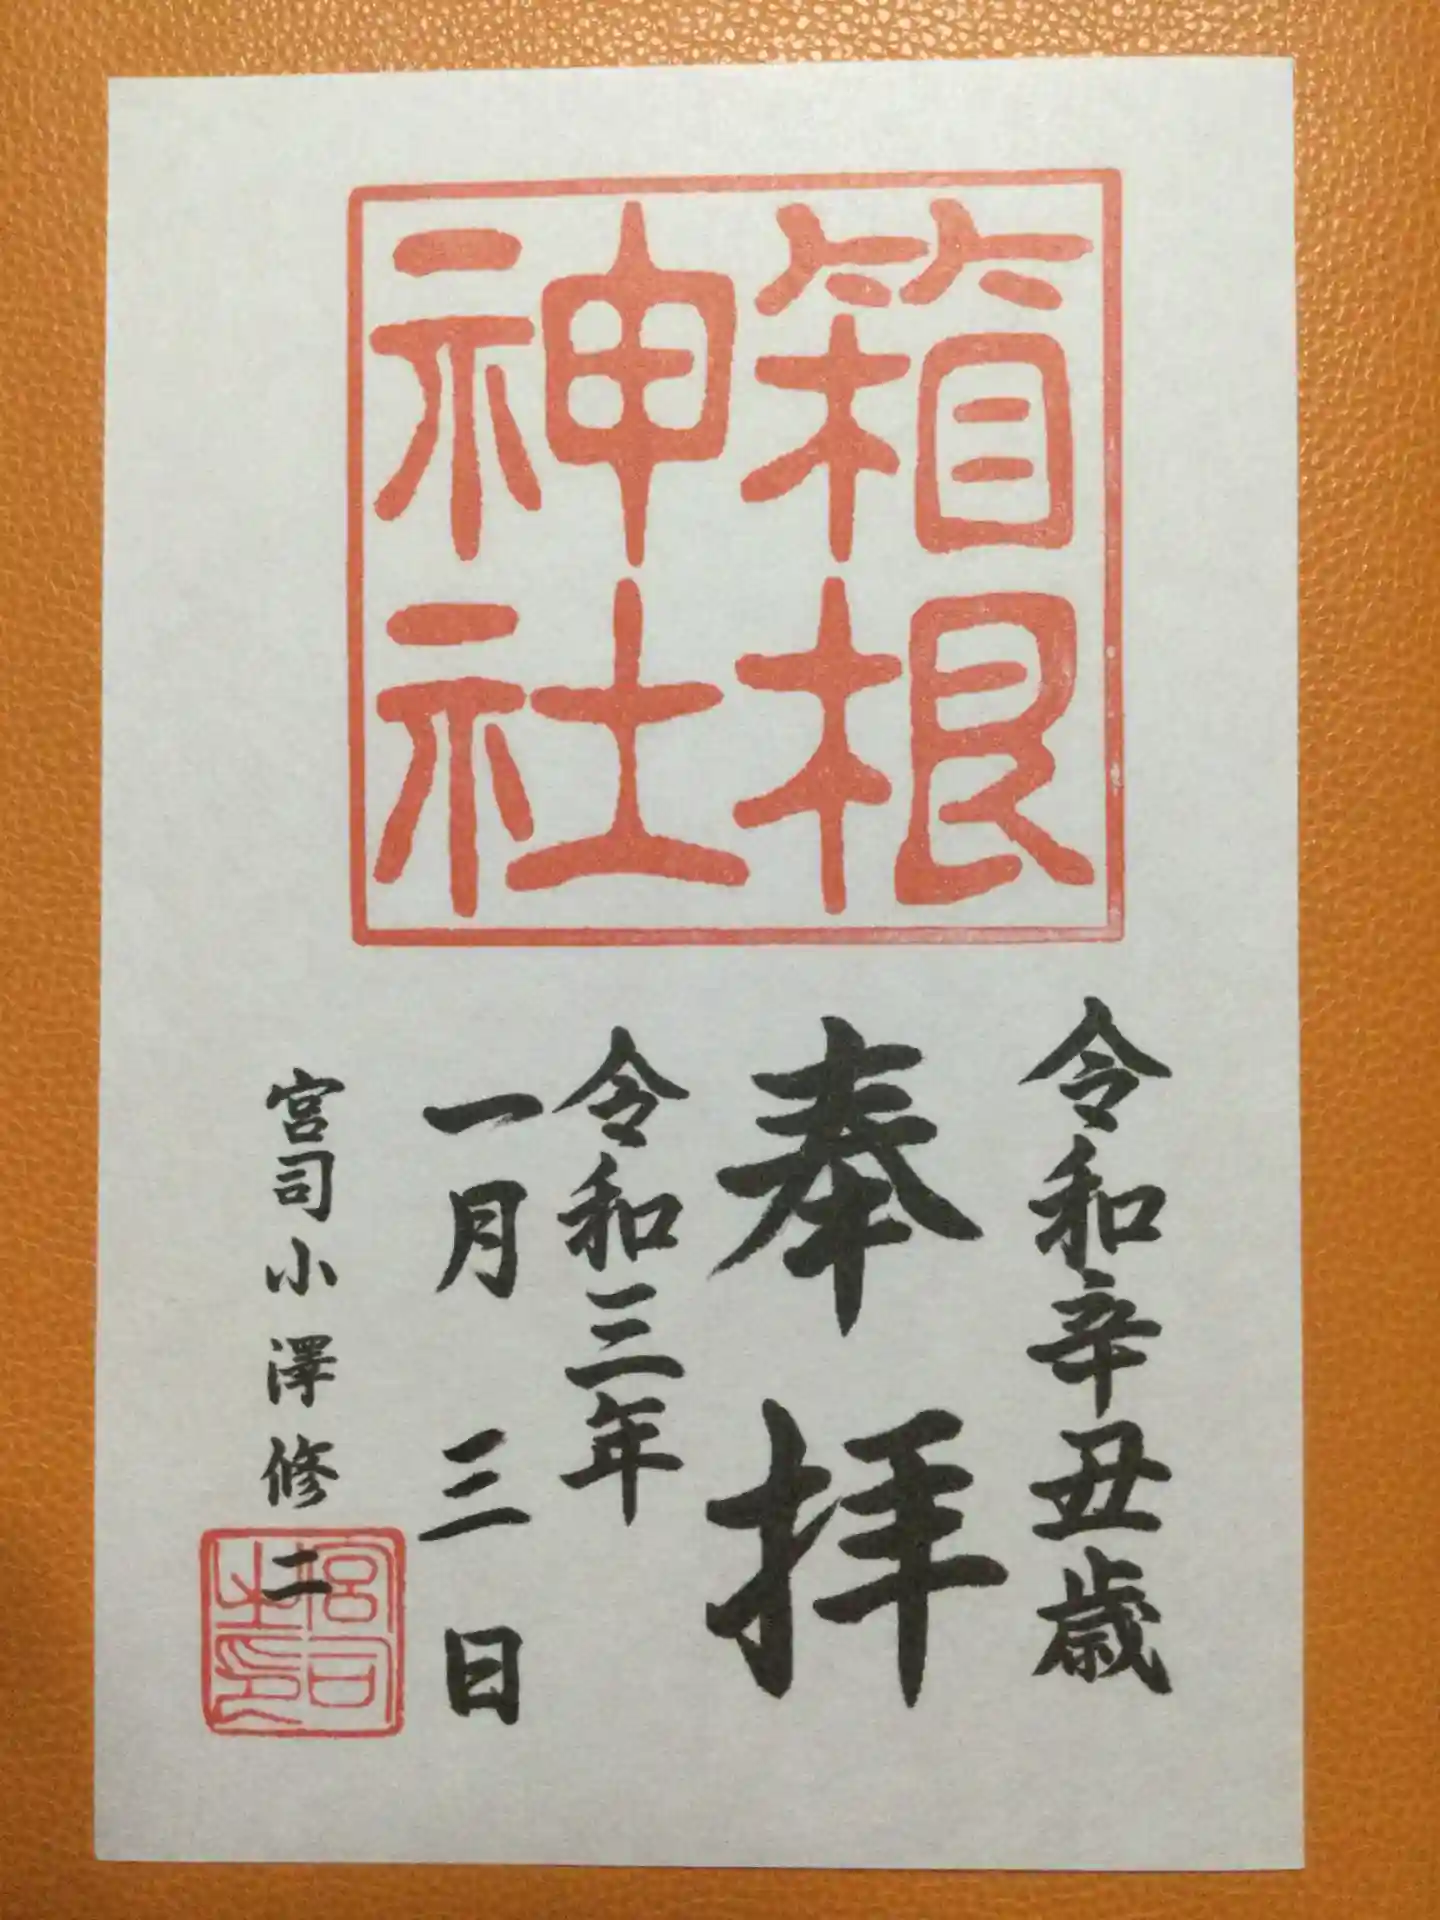 箱根
神社
令和辛丑歳
奉拝
令和三年
一月三日
宮司小澤修二
宮司
之印